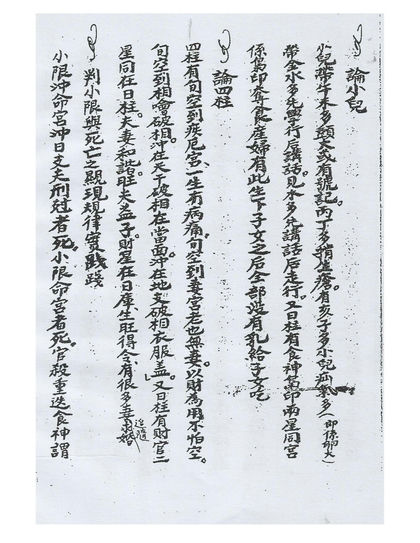 論小兒
小兒帶木多頭大或有號記。丙丁多瘡有亥子多小兒多(即係卵大)
帶金水多先學行后講話。見木多先講話后走行。又日柱有食神梟印兩星同宮
係梟印奪食產婦有此生下子女之后全部沒有乳給子女吃
論四柱
四柱有旬空到疾厄宮、一生有病痛、旬空到妻宮老也無妻。以財為用不怕空。
旬空到相破相。沖在天干破相在當面沖在地支破相衣服蓋。又日柱有財官二
星同在日柱。夫妻和諧旺夫益子財星在日庫生旺得令有很多妻
判小限與死亡之顯現規律實踐
小限沖命宮沖日支天刑者死。小限命宮者死。官殺重迭食神謂